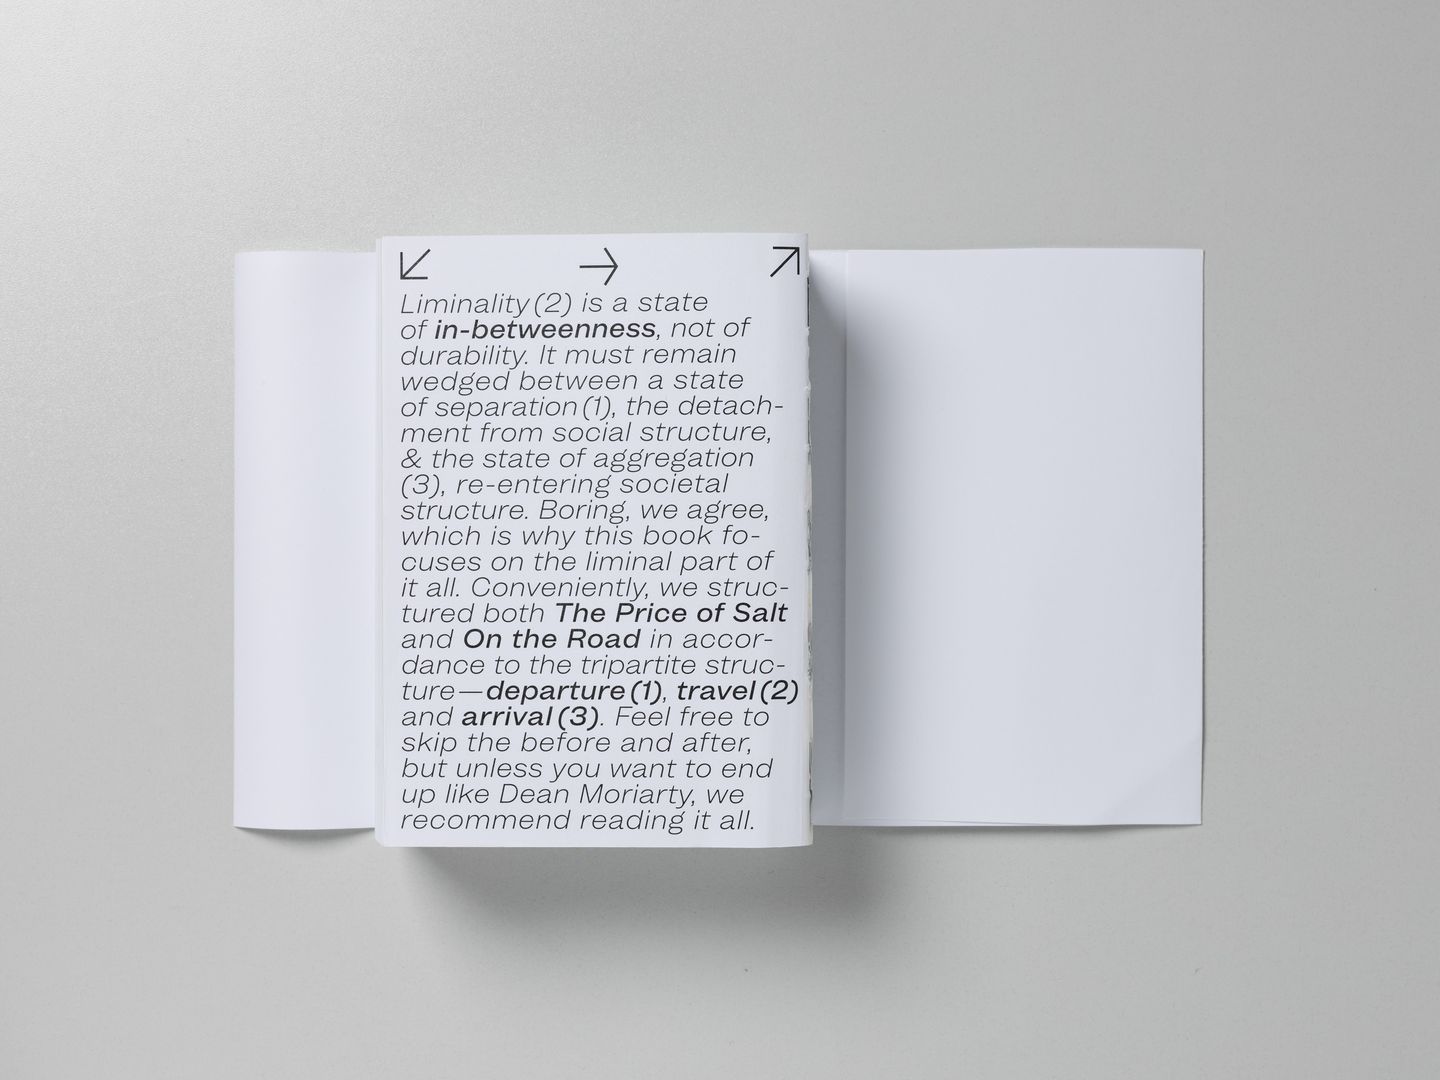 ↙ → ↗
Liminality (2) is a state
of in-betweenness, not of
durability. It must remain
wedged between a state
of separation (1), the detach-
ment from social structure,
& the state of aggregation
(3), re-entering societal
structure. Boring, we agree,
which is why this book fo-
cuses on the liminal part of
it all. Conveniently, we struc-
tured both The Price of Salt
and On the Road in accor-
dance to the tripartite struc-
ture—departure (1), travel (2)
and arrival (3). Feel free to
skip the before and after,
but unless you want to end
up like Dean Moriarty, we
recommend reading it all.